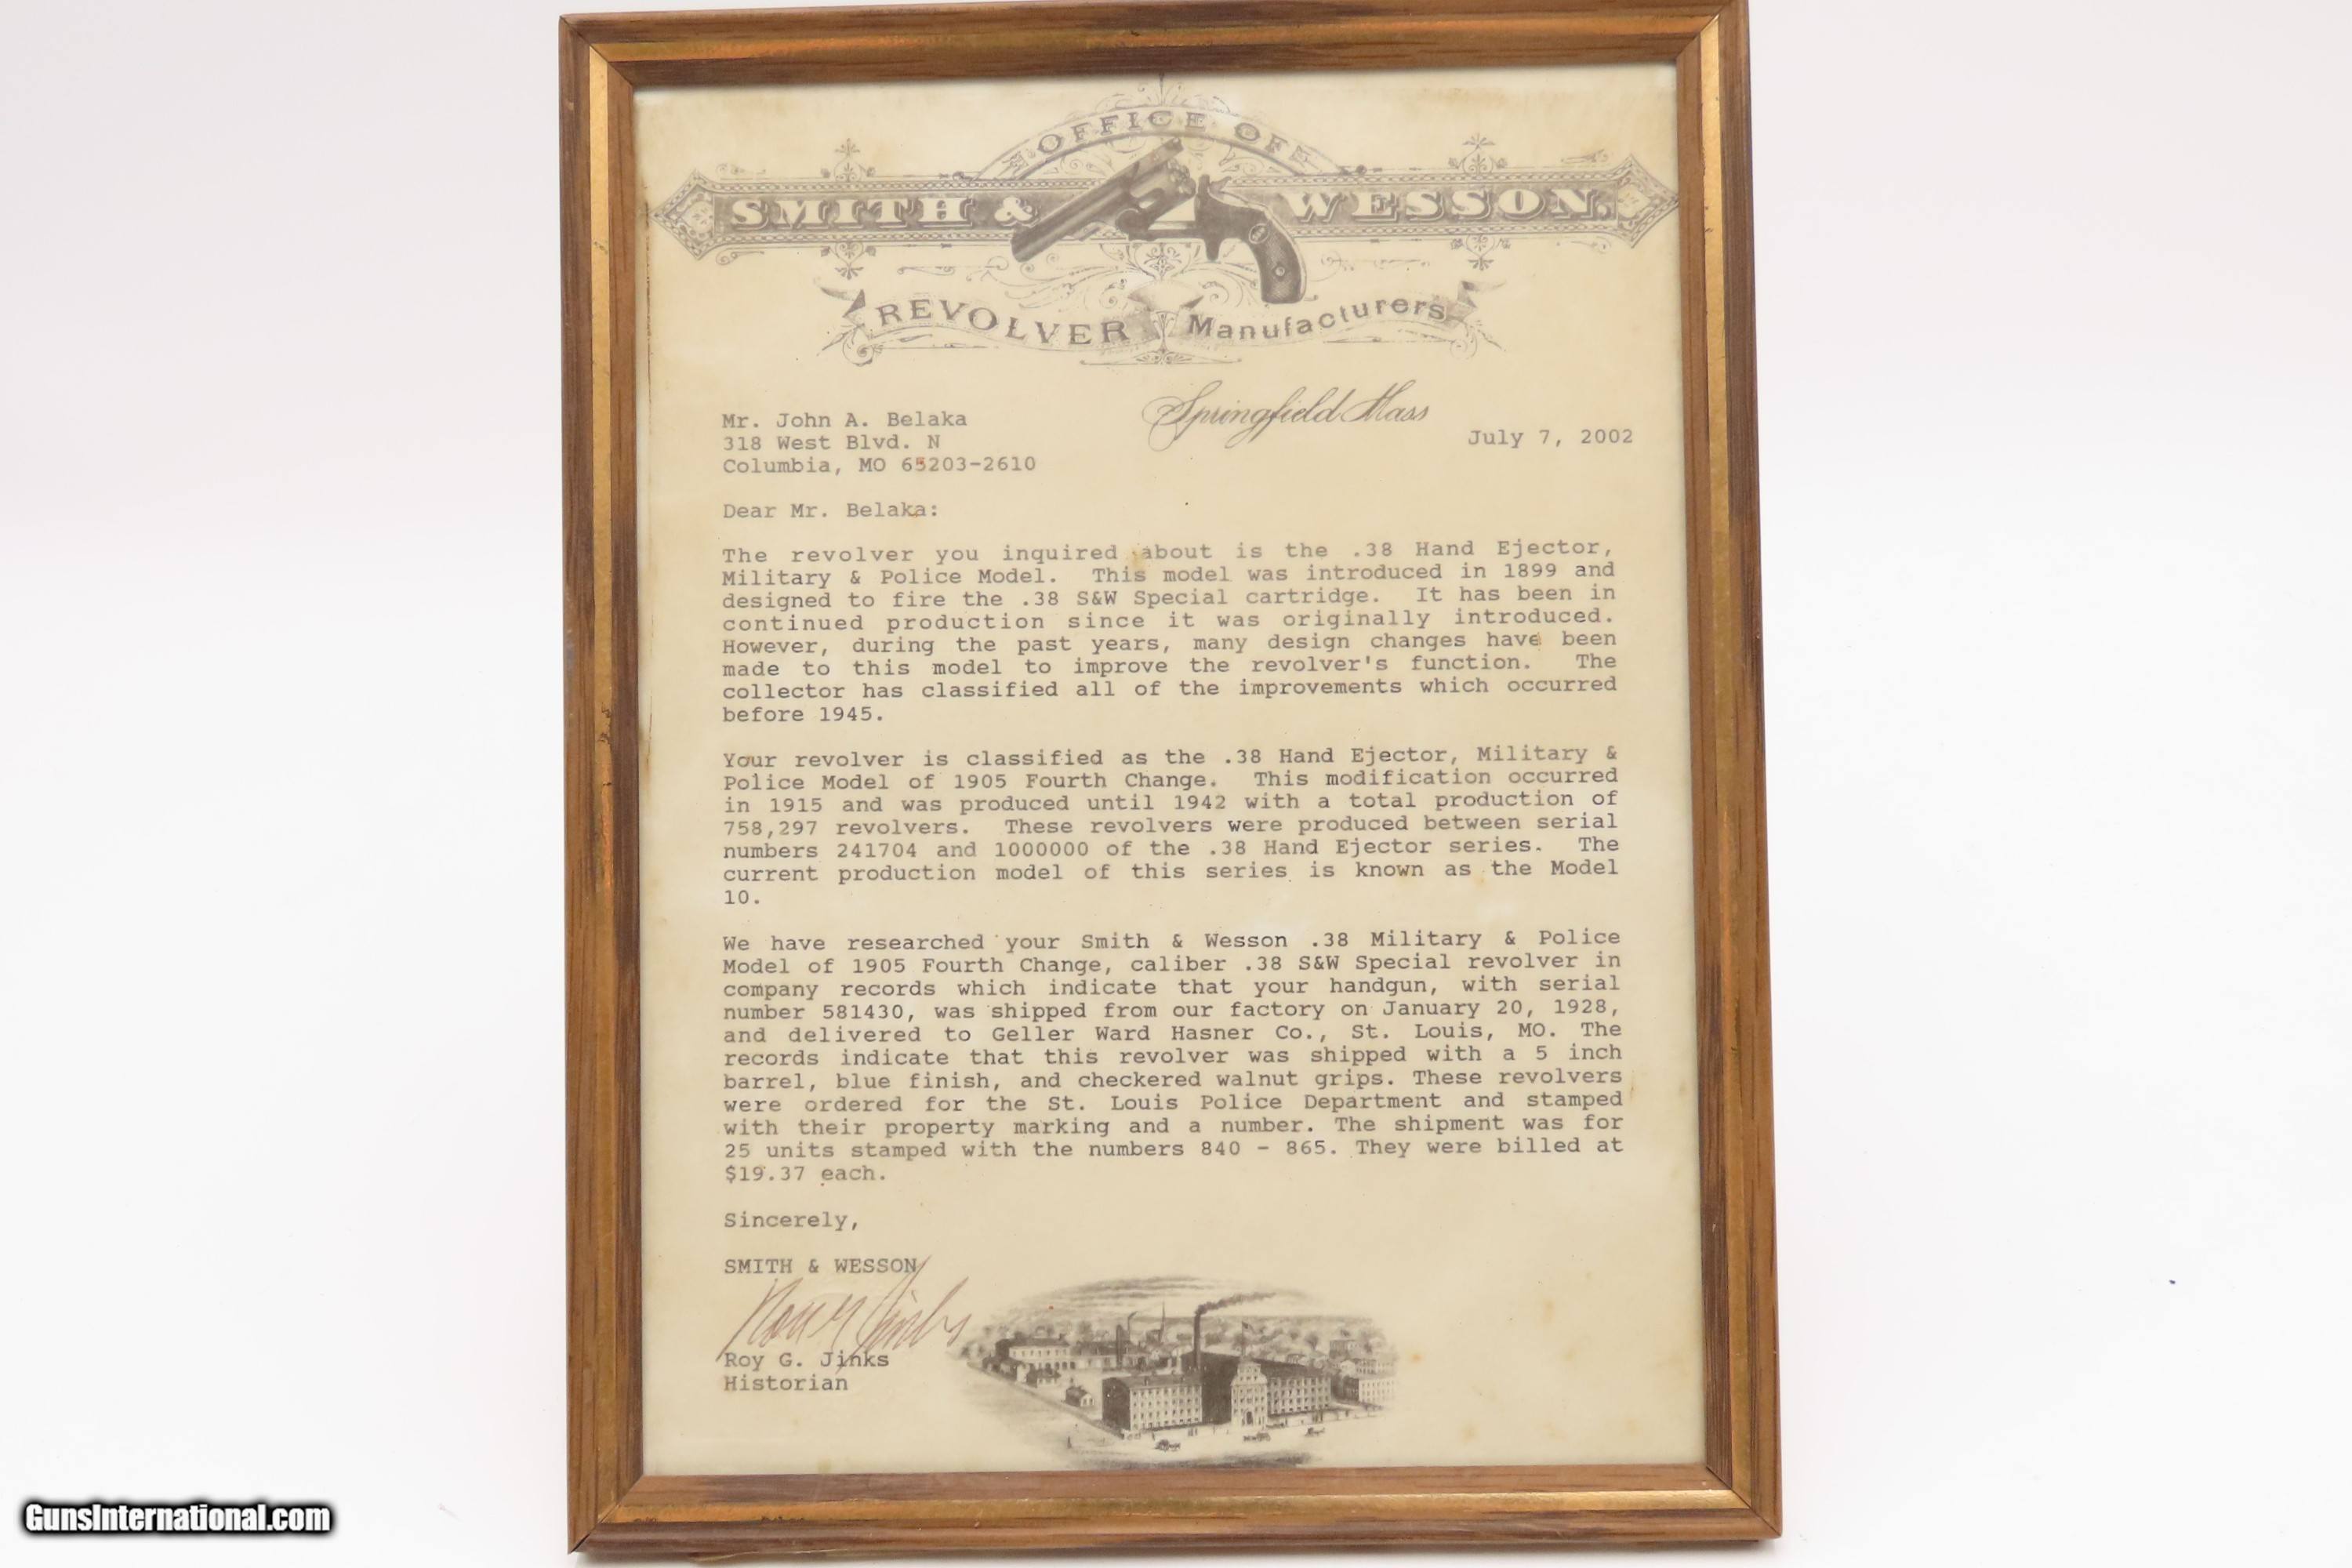 OFFICE OF
SMITH & WESSON.
REVOLVER Manufacturers
Springfield Mass
Mr. John A. Belaka
318 West Blvd. N
Columbia, MO 65203-2610
July 7, 2002
Dear Mr. Belaka:
The revolver you inquired about is the .38 Hand Ejector,
Military & Police Model. This model was introduced in 1899 and
designed to fire the .38 S&W Special cartridge. It has been in
continued production since it was originally introduced.
However, during the past years, many design changes have been
made to this model to improve the revolver's function. The
collector has classified all of the improvements which occurred
before 1945.
Your revolver is classified as the .38 Hand Ejector, Military &
Police Model of 1905 Fourth Change. This modification occurred
in 1915 and was produced until 1942 with a total production of
758,297 revolvers. These revolvers were produced between serial
numbers 241704 and 1000000 of the .38 Hand Ejector series. The
current production model of this series is known as the Model
10.
We have researched your Smith & Wesson .38 Military & Police
Model of 1905 Fourth Change, caliber .38 S&W Special revolver in
company records which indicate that your handgun, with serial
number 581430, was shipped from our factory on January 20, 1928,
and delivered to Geller Ward Hasner Co., St. Louis, MO. The
records indicate that this revolver was shipped with a 5 inch
barrel, blue finish, and checkered walnut grips. These revolvers
were ordered for the St. Louis Police Department and stamped
with their property marking and a number. The shipment was for
25 units stamped with the numbers 840 - 865. They were billed at
$19.37 each.
Sincerely,
SMITH & WESSON
Roy G. Jinks
Roy G. Jinks
Historian
GunsInternational.com